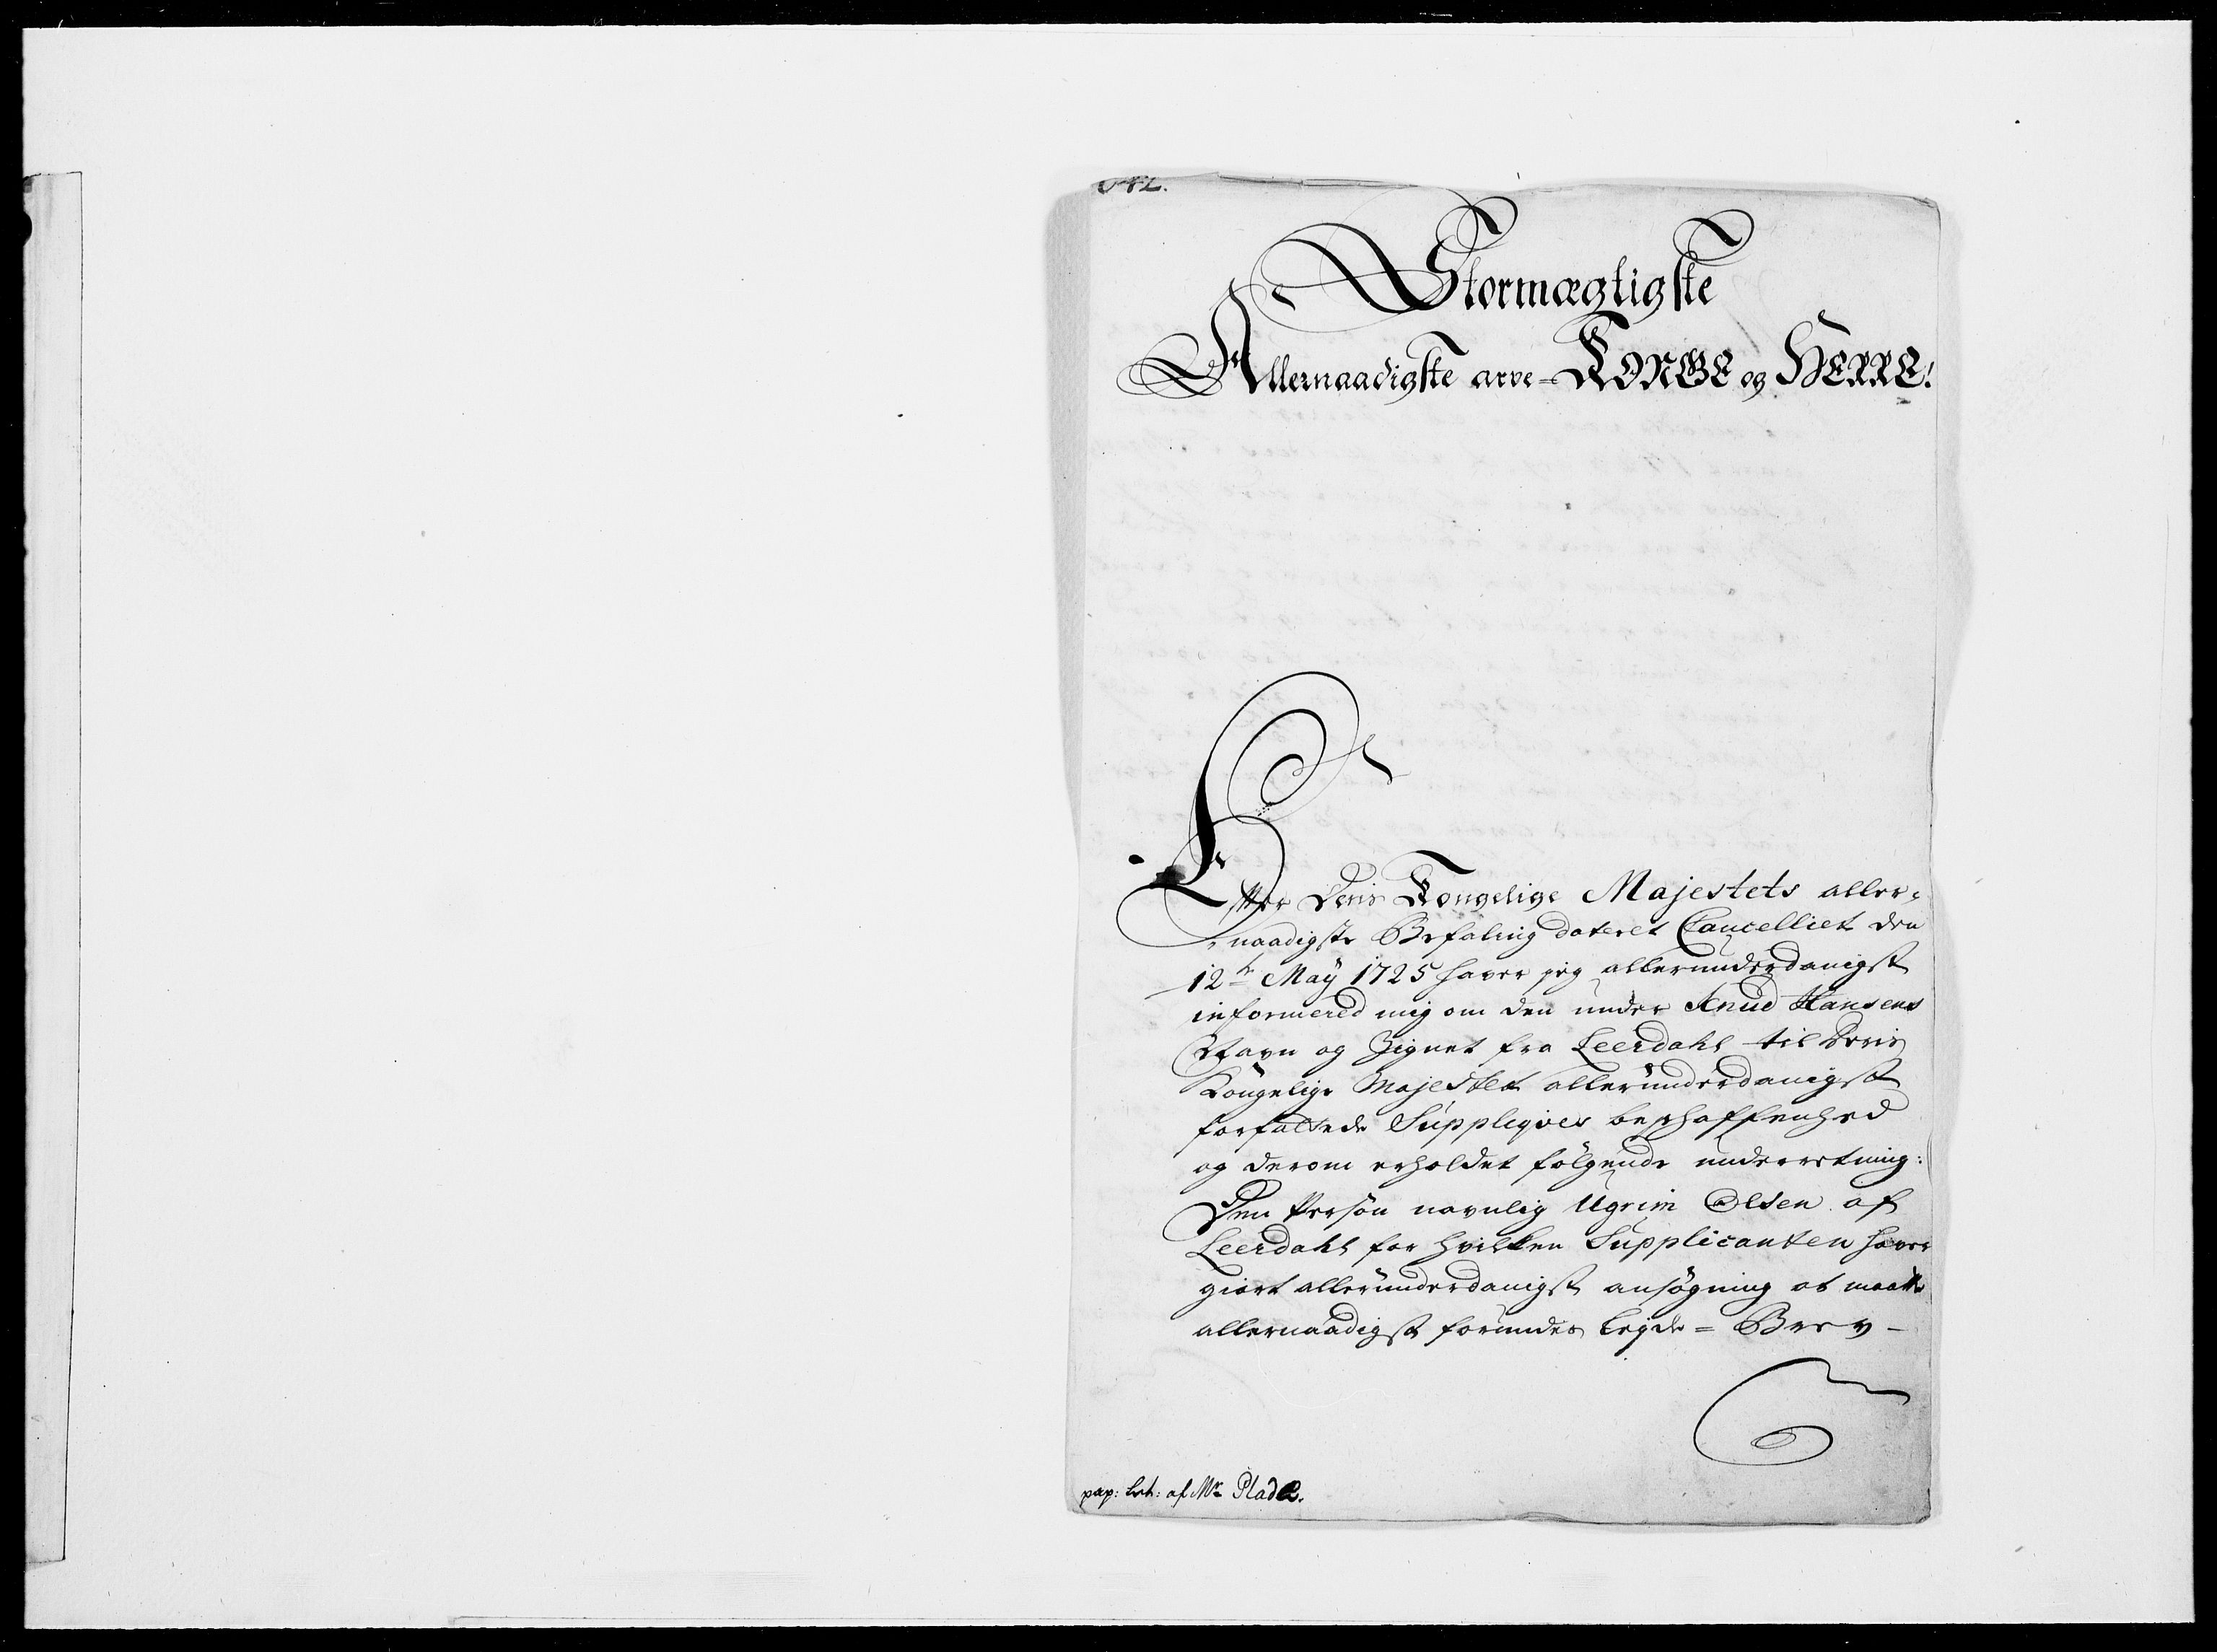 Stormægtigste
Allernaadigste arve-KONGE og HERRE!
Effter Deris Kongelige Majestets aller-
naadigste Befaling dateret Cancelliet den
12te Maÿ 1725 haver jeg allerunderdanigst
informered mig om den under Knud Hansens
Nafn og Zignet fra Leerdahl til Deris
Kongelige Majestet allerunderdanigst
forfattede Suppliqves beschaffenhed
og derom erholdet følgende underretning:
Den Persøn navnlig Ugrim Olsen af
Leerdahl for hvilken Supplicanten haver
giørt allerunderdanigst ansøgning at maatte
allernaadigst forundes Leyde=Brev-
pap: af Mr Plade.